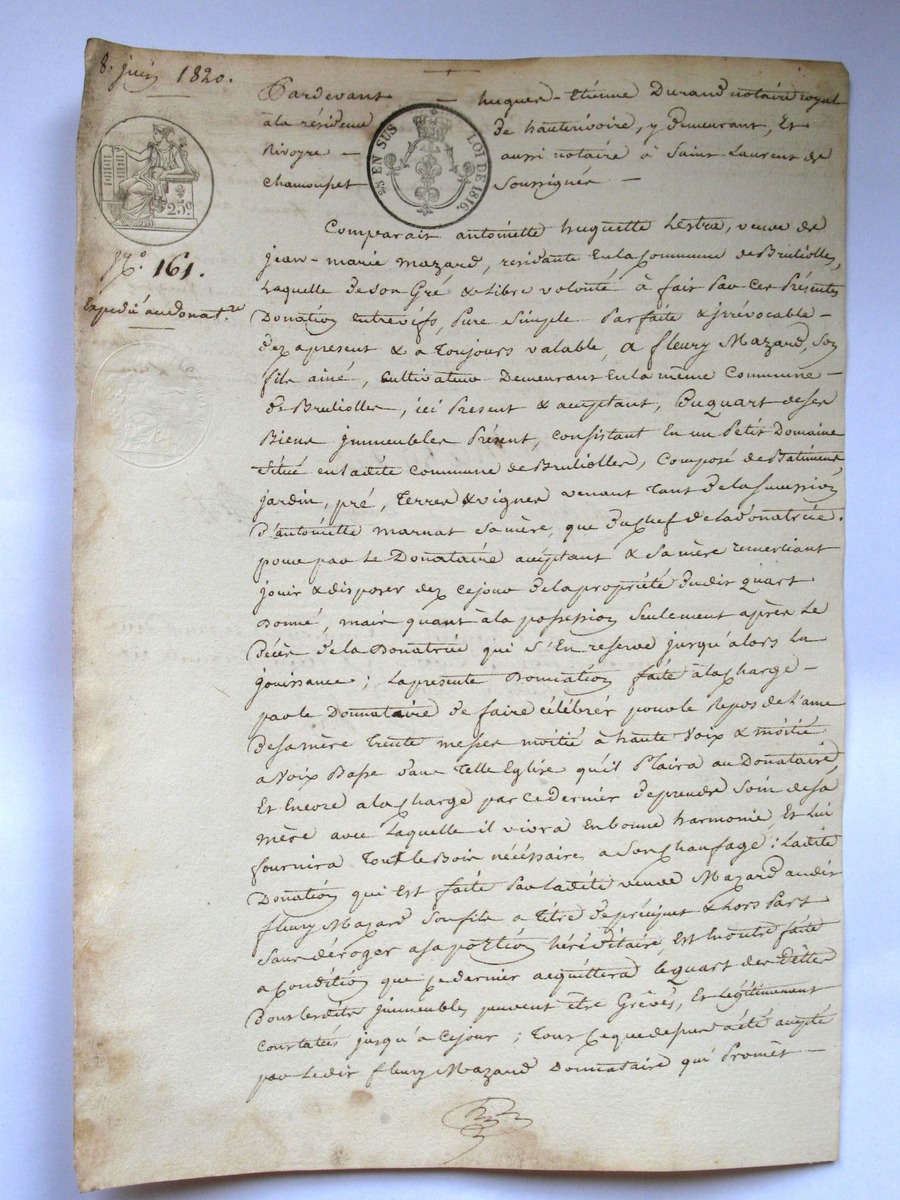 8. juin 1820.
Pardevant hugues-Etienne Durand notaire royal
à la residence de hauterivoire, y demeurant, Et
Rivoyre aussi notaire à Saint Laurent de
Chamousset Soussignés
25 EN SUS LOI DE 1816.
25c
No. 161.
Expedié au donat.re
Comparait antoinette huguette Lestra, veuve de
jean-marie mazard, residante En la Commune de Brulliolles,
Laquelle de son Gré & Libre volonté à fait Par Ces Présentes
Donation entrevifs, Pure Simple Parfaite & jrrévocable
dez apresent & a Toujours valable, a fleury Mazard, Son
fils ainé, Cultivateur Demeurant En la même Commune
de Brulliolles, ici Present & acceptant, Du quart de ses
Biens jmmeubles Présent, Consistant En un Petit Domaine
Situé en ladite Commune de Brulliolles, Composé de Batiment
jardin, pré, Terres & vignes venant Tant de la Succession
D'antoinette marnat Sa mère, que du chef de la donatrice.
pour par le Donataire acceptant & Sa mère remerciant
jouir & disposer dez Ce jour de la propriété dudit quart
Donné, mais quant à la possession Seulement après Le
Décès de la Donatrice qui S'En reserve jusqu'alors La
jouissance; La presente Donnation faite à la Charge
par le Donnataire de faire Célébrér pour le Repos de L'ame
de sa mère trente messes moitié à haute Voix & moitié
a Voix Basse dans Telle Eglise qu'il Plaira au Donataire,
Et Encore a la Charge par ce dernier de prendre Soin de sa
mère avec Laquelle il vivra En bonne harmonie, Et Lui
fournira Tout le Bois nécéssaires a Son Chaufage; Ladite
Donation qui Est faite Par ladite veuve Mazard audit
fleury Mazard Son fils a Titre de préciput & hors Part
Sans déroger a sa portion héréditaire, Est En outre faite
a Condition que ce dernier acquittera le quart des Dettes
Dont lesdits jmmeubles peuvent être Grêvés, Et légitimement
Constatés jusqu'à Ce jour; Tout Ce que dessus a été accepté
par Ledit fleury Mazard Donnataire qui Promet